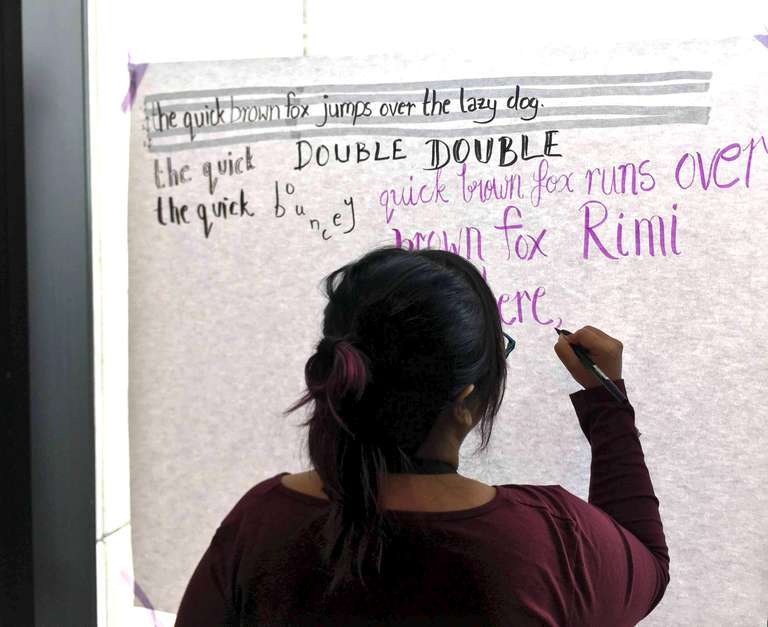 the quick brown fox jumps over the lazy dog.
the quick DOUBLE DOUBLE
the quick bouncey quick brown fox runs over
brown fox Rimi
ere,